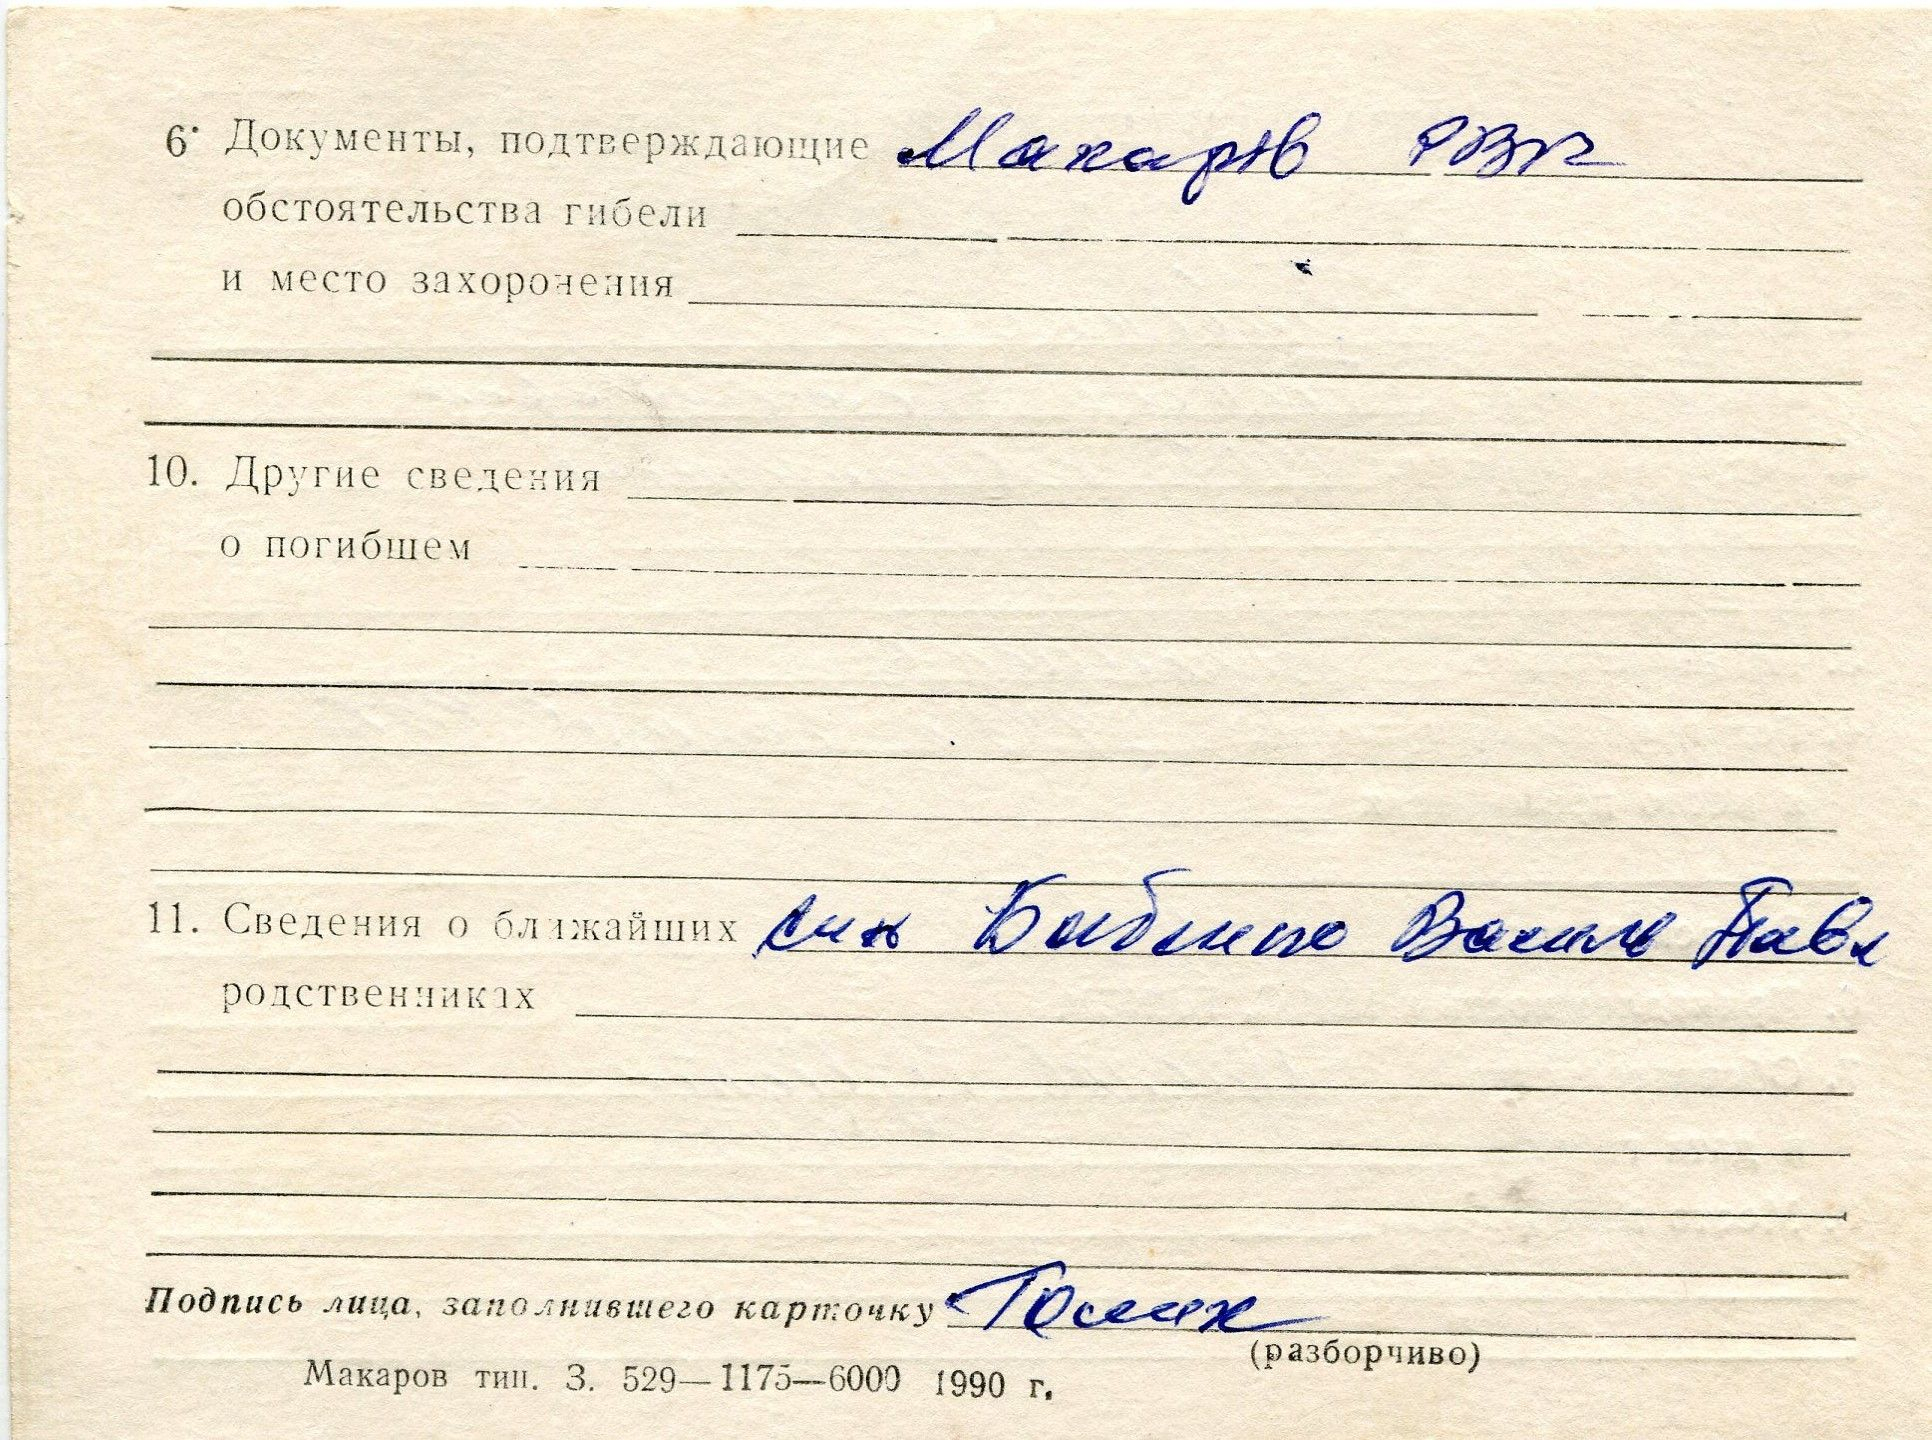 6. Документы, подтверждающие Макарів РВК
обстоятельства гибели
и место захоронения
10. Другие сведения
о погибшем
11. Сведения о ближайших син Василь Павл
родственниках
Подпись лица, заполнившего карточку
(разборчиво)
Макаров тип. З. 529—1175—6000 1990 г.